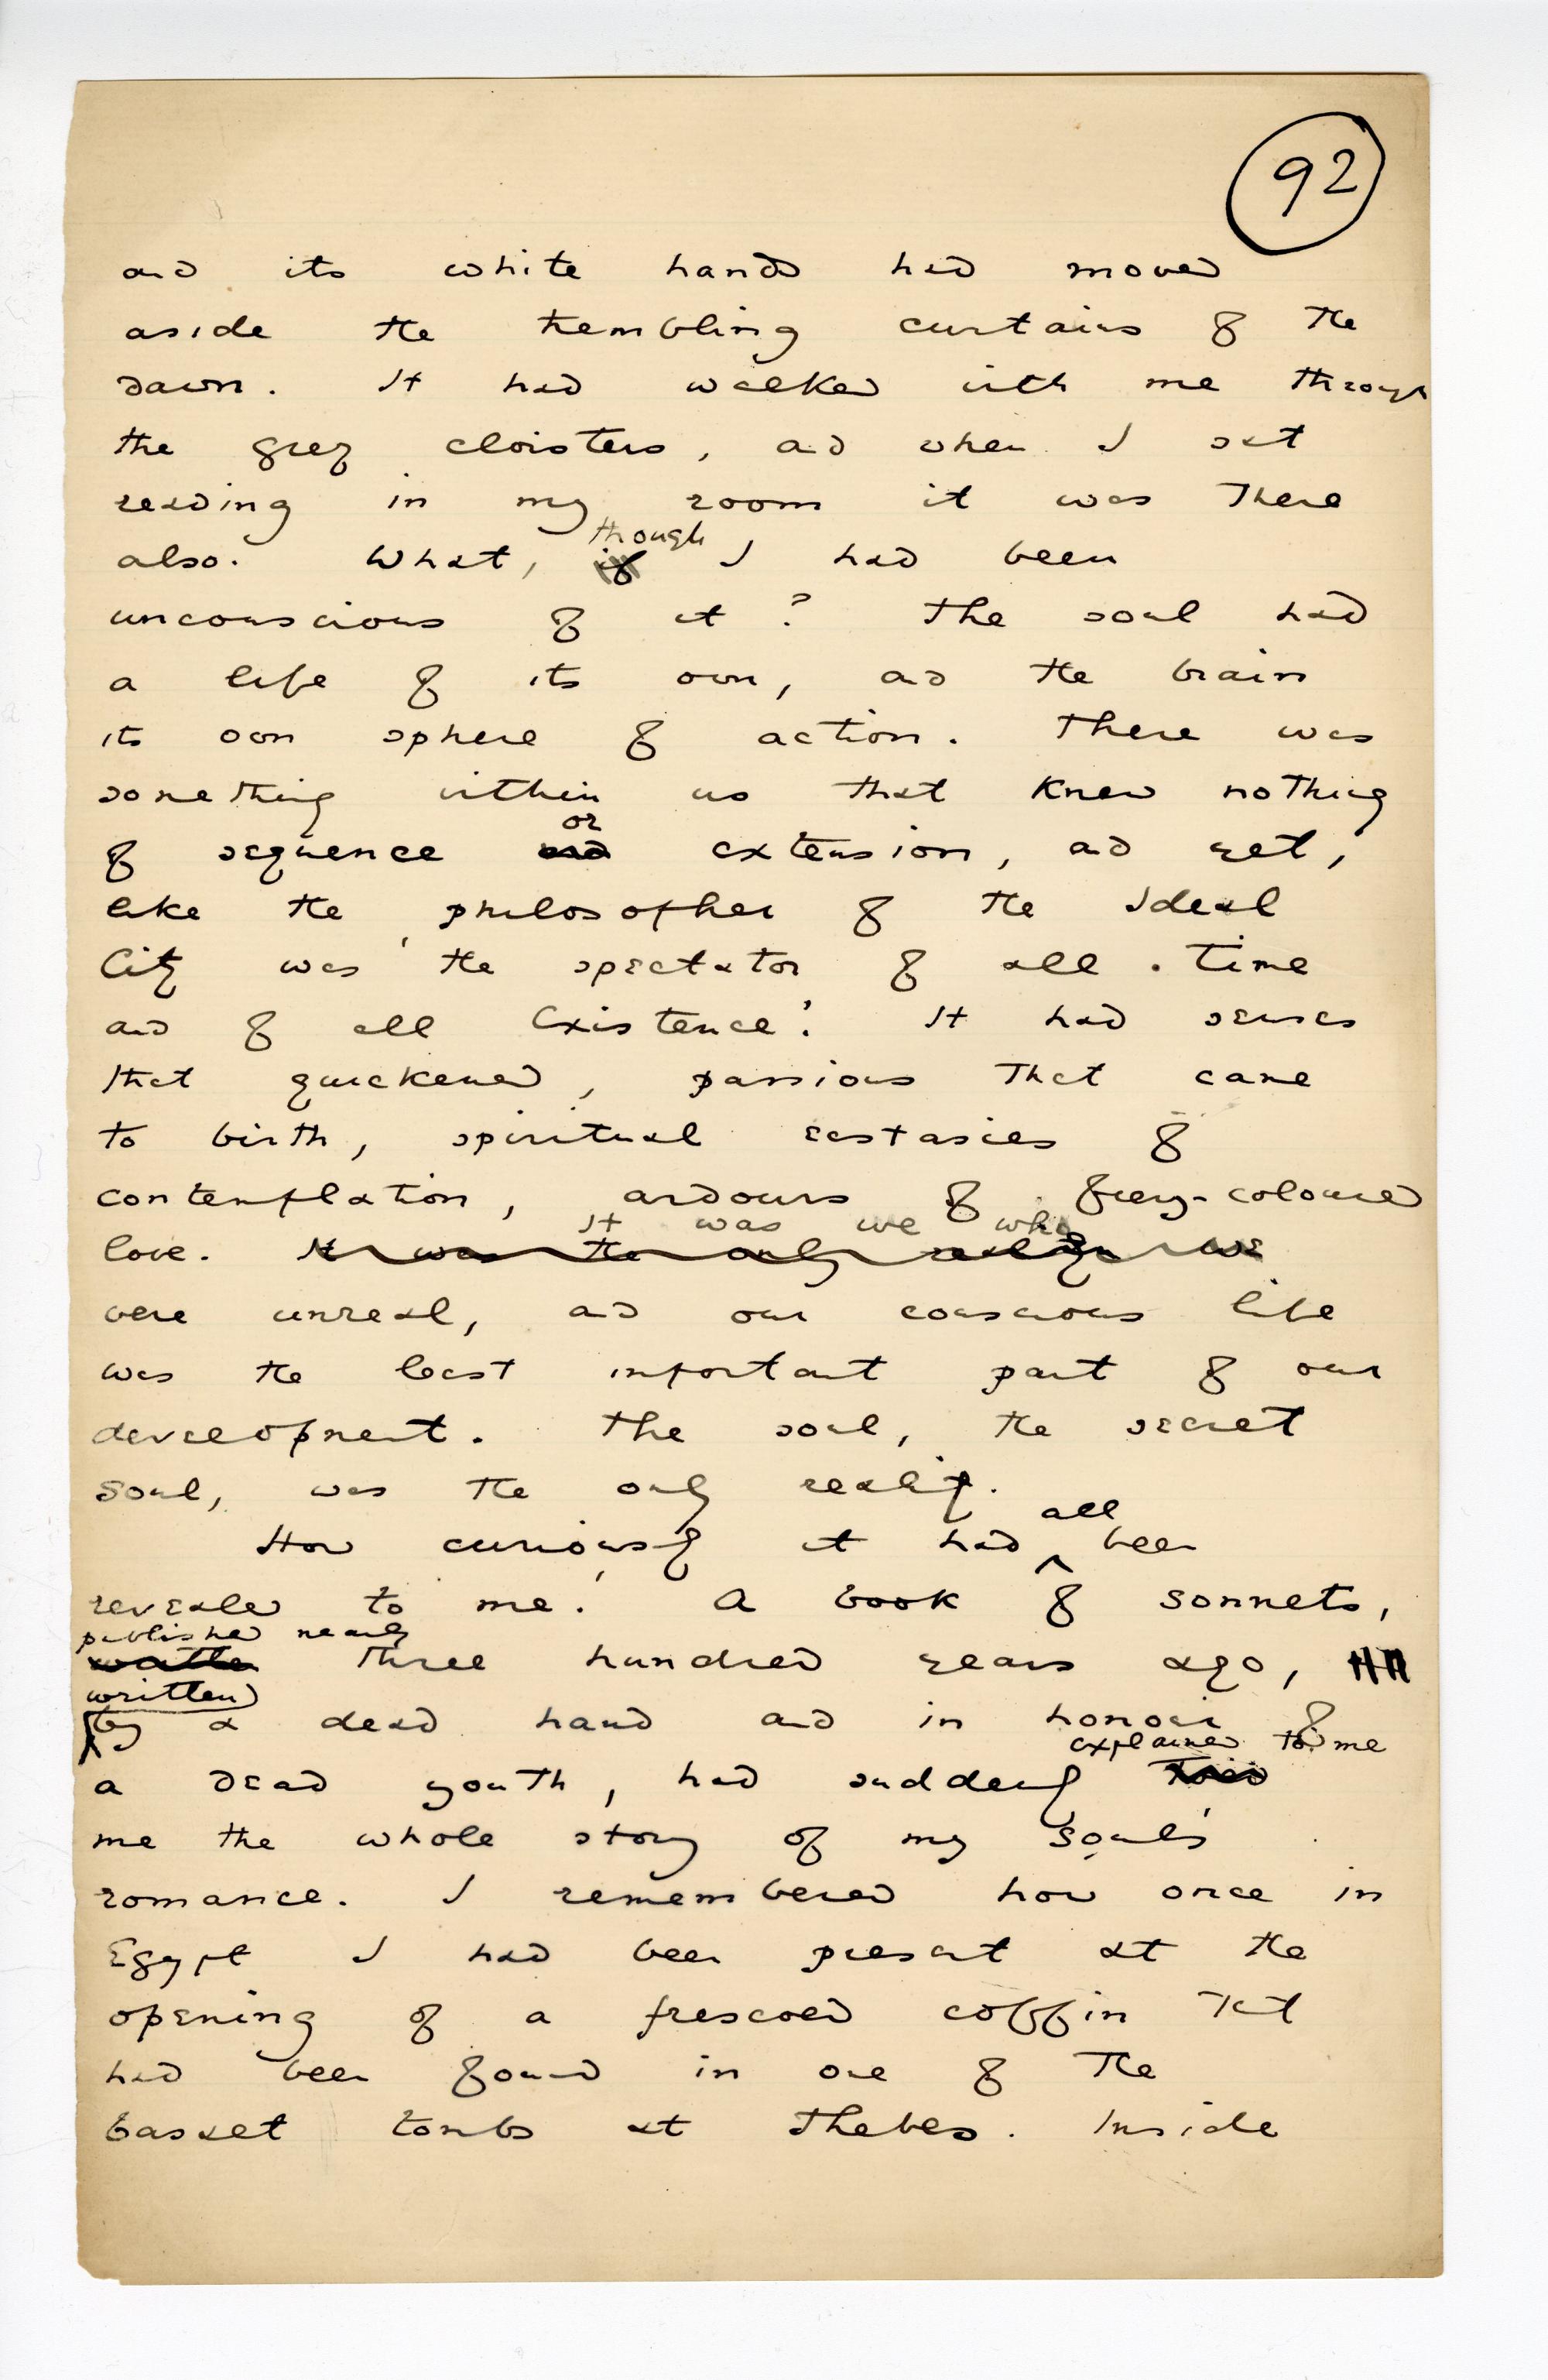 92
and its white hands had moved
aside the trembling curtains of the
dawn. It had walked with me through
the grey cloisters, and when I sat
reading in my room it was there
also. What, if though I had been
unconscious of it? The soul had
a life of its own, and the brain
its own sphere of action. There was
something within us that knew nothing
of sequence and or extension, and yet,
like the philosopher of the Ideal
City was 'the spectator of all time
and of all existence.' It had senses
that quickened, passions that came
to birth, spiritual ecstasies of
contemplation, ardours of fiery-coloured
It was we who
love. It was the only reality we
were unreal, and our conscious life
was the least important part of our
development. The soul, the secret
soul, was the only reality.
How curiously it had all been
revealed to me! A book of sonnets,
published nearly
written three hundred years ago,
written
by a dead hand and in honour of
explained to me
a dead youth, had suddenly told
me the whole story of my soul's
romance. I remembered how once in
Egypt I had been present at the
opening of a frescoed coffin that
had been found in one of the
basalt tombs at Thebes. Inside